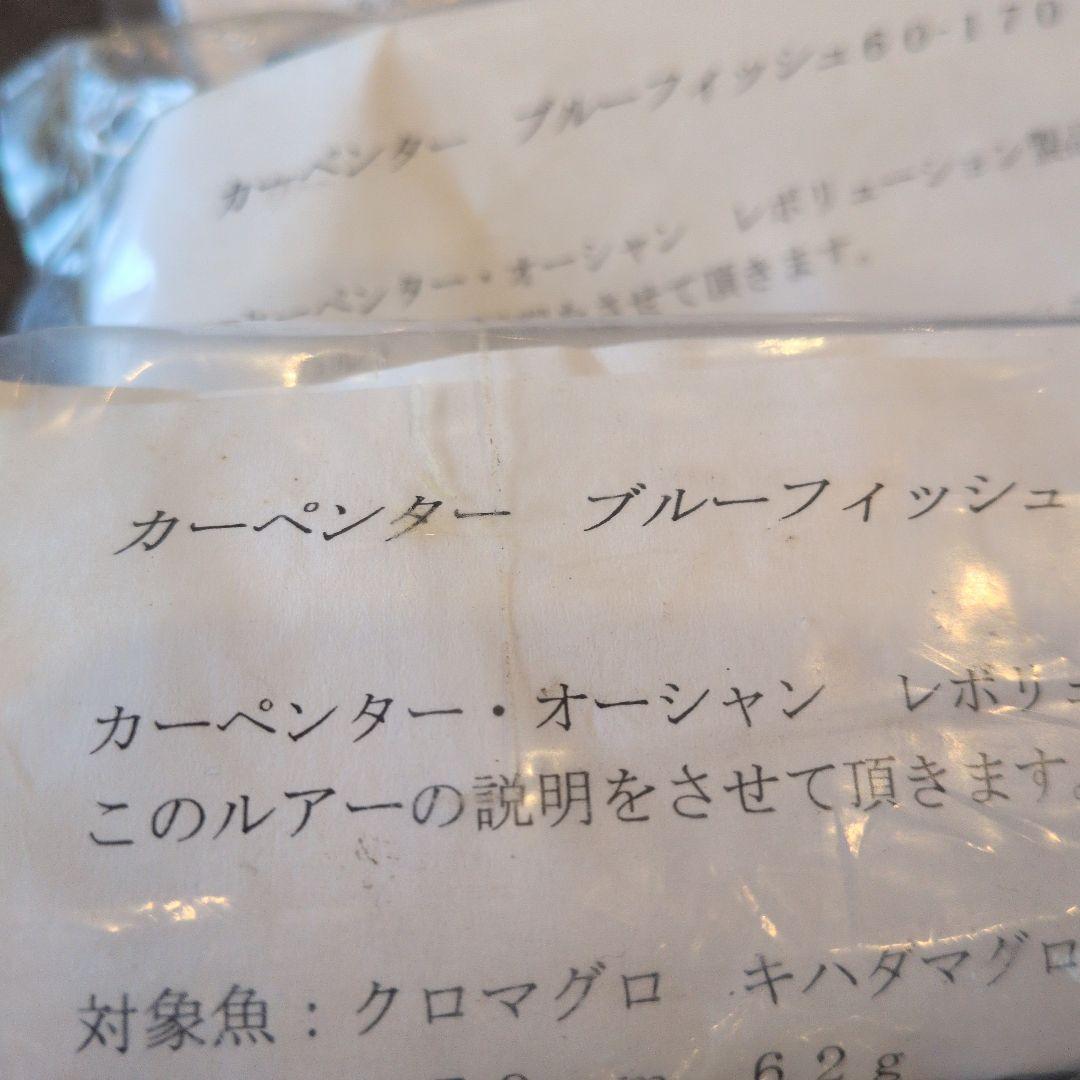 カーペンター　ブルーフィッシュ６０-１７０
カーペンター・オーシャン　レボリューション製品
させて頂きます。
カーペンター　ブルーフィッシュ
カーペンター・オーシャン　レボリュ
このルアーの説明をさせて頂きます。
対象魚：クロマグロ　キハダマグロ
６２ｇ